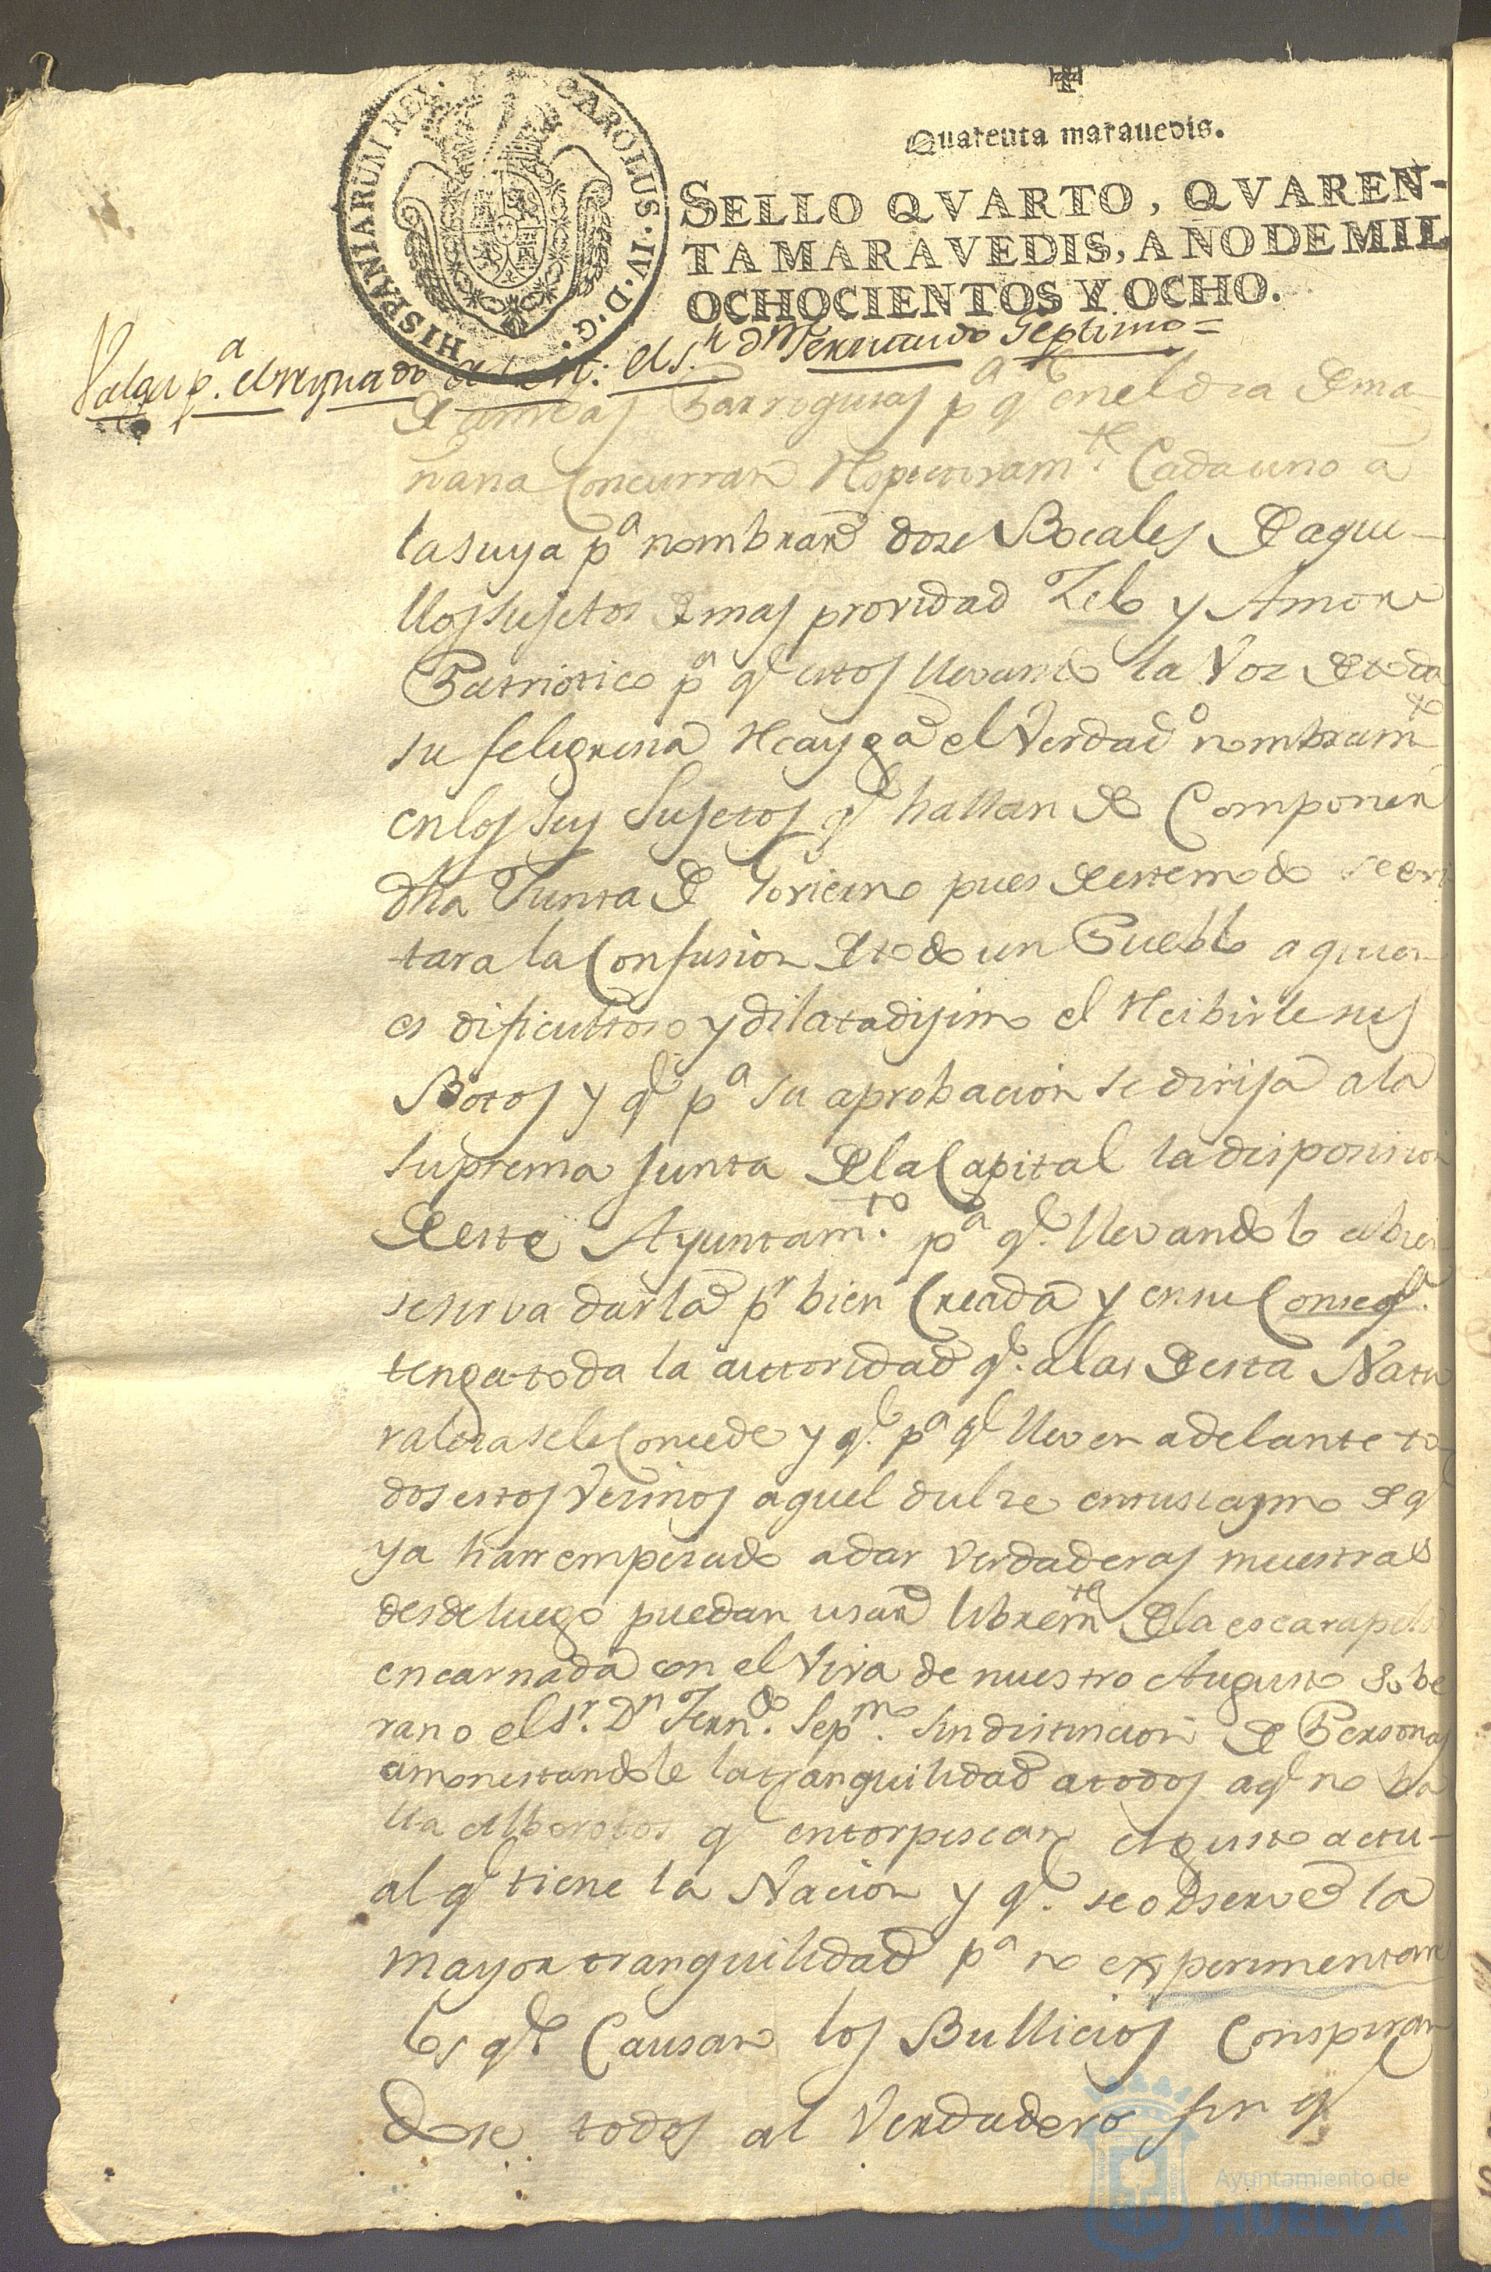 HISPANIARUM REX. CAROLUS·IV·D·G·
Quarenta marauedis.
SELLO QVARTO, QVAREN-
TA MARAVEDIS, AÑO DE MIL
OCHOCIENTOS Y OCHO.
Valga p.a el reynado de S.M: el S.r dn Fernando Septimo =
de ambas Parroquias pa q.e en el dia de ma
ñana Concurran Respectivam.te Cada uno a
la suya pa nombrar dose Bocales de aque-
llos sujetos de mas providad Zelo y Amor
Patriotico pa q.e estos llevando la Voz de toda
su feligresia Recayga el Verdado nombram.to
en los seis Sujetos q.e hallan de Componer
dha Junta de Govierno pues de este modo se evi
tara la Confusion de todo un Pueblo a quien
es dificultoso y dilatadisimo el Recibirle sus
Botos y q.e pa su aprobacion se dirija a la
Suprema Junta de la Capital la disposicion
de este Ayuntam.to pa q.e llevandolo a bien
se sirva darla pr bien Creada y en su Conseq.a
tenga toda la autoridad q.e a las de esta Natu
raleza se le Concede y q.e pa q.e lleven adelante to
dos estos Vecinos aquel dulze entusiasmo de q.e
ya han empezado a dar verdaderas muestras
desde luego puedan usar librem.te de la escarapela
encarnada con el Viva de nuestro Augusto Sobe
rano el S.r D.n Fern.do Sep.mo sin distincion de Personas
amonestandole la tranquilidad a todos a q.e no ha
lla alborotos q.e entorpescan el gusto actu-
al q.e tiene la Nacion y q.e se observe la
mayor tranquilidad pa no experimentar
los q.e Causan los Bullicios Conspiran
dose todos al Verdadero fin q.e
Ayuntamiento de
HUELVA